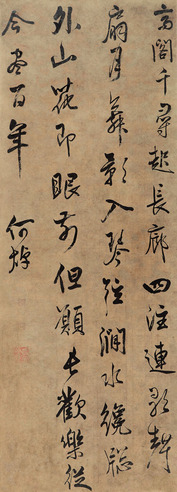 高閣千尋起長廊四注連歌聲
扇月舞影入琴弦澗水纔牕
外山花即眼前但願長歡樂從
今盡百年 何焯